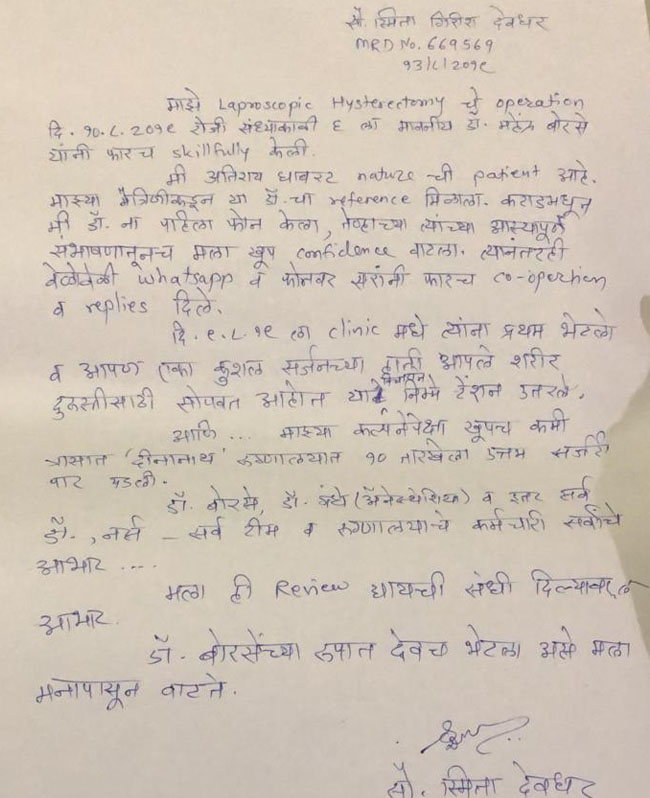 सौ. स्मिता गिरीश देवधर
MRD No. 669569
१३/८/२०१९
माझे Laproscopic Hysterectomy चे operation
दि. १०.८.२०१९ रोजी संध्याकाळी ६ ला माननीय डॉ. महेंद्र बोरसे
यांनी फारच skillfully केली.
मी अतिशय घाबरट nature ची patient आहे.
माझ्या मैत्रिणीकडून या डॉ. चा reference मिळाला. कराडमधून
मी डॉ. ना पहिला फोन केला, तेव्हाच्या त्यांच्या आस्थापूर्ण
संभाषणातूनच मला खूप confidence वाटला. त्यानंतरही
वेळोवेळी whatsapp व फोनवर सरांनी फारच co-opertion
व replies दिले.
दि. ९.८.१९ ला clinic मधे त्यांना प्रथम भेटलो
व आपण एका कुशल सर्जनच्या हाती आपले शरीर
दुरुस्तीसाठी सोपवत आहोत निम्मे टेंशन उतरले.
आणि ... माझ्या कल्पनेपेक्षा खूपच कमी
त्रासात 'दीनानाथ' रुग्णालयात १० तारखेला उत्तम सर्जरी
पार पडली.
डॉ. बोरसे, डॉ. (ॲनेस्थेशिया) व इतर सर्व
डॉ., नर्स – सर्व टीम व रुग्णालयाचे कर्मचारी सर्वांचे
आभार ....
मला ही Review द्यायची संधी दिल्याबद्दल
आभार.
डॉ. बोरसेंच्या रुपात देवच भेटला असे मला
मनापासून वाटते.
सौ. स्मिता देवधर